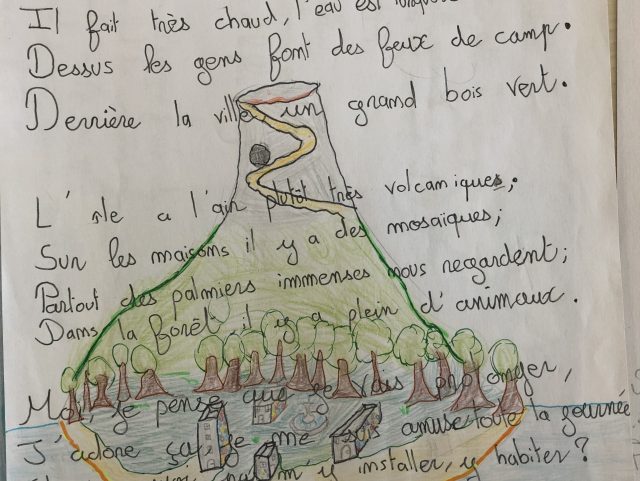 Il fait très chaud, l'eau est
Dessus les gens font des feux de camp.
Derrière la ville un grand bois vert.
L'île a l'air plutôt très volcaniques;
Sur les maisons il y a des mosaïques;
Partout des palmiers immenses nous regardent;
Dans la forêt il y a plein d'animaux.
Moi je pense que je vais plonger,
J'adore ça, je me suis amusé toute la journée
m'y installer, y habiter?